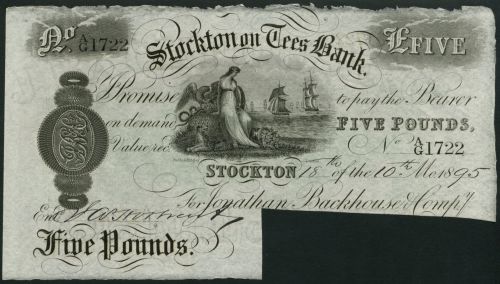 No A/G1722
Stockton on Tees Bank.
£FIVE
Promise to pay the Bearer
on demand FIVE POUNDS,
Value recd. No A/G1722
STOCKTON 18th of the 10th Mo 1895
For Jonathan Backhouse & Compy
Entd
Five Pounds.